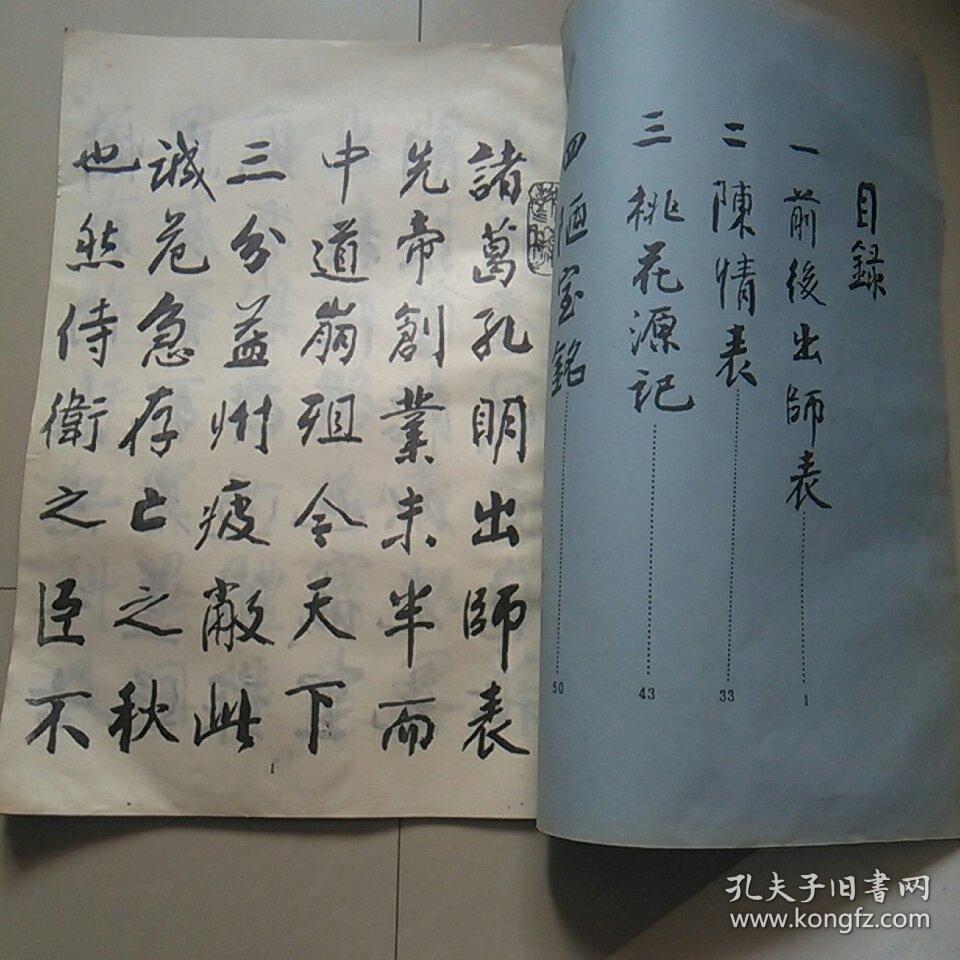 目錄
一 前後出師表 1
二 陳情表 33
三 桃花源記 43
四 陋室銘 50
諸葛孔明出師表
先帝創業未半而
中道崩殂今天下
三分益州疲敝此
誠危急存亡之秋
也然侍衛之臣不
1
孔夫子旧书网
www.kongfz.com